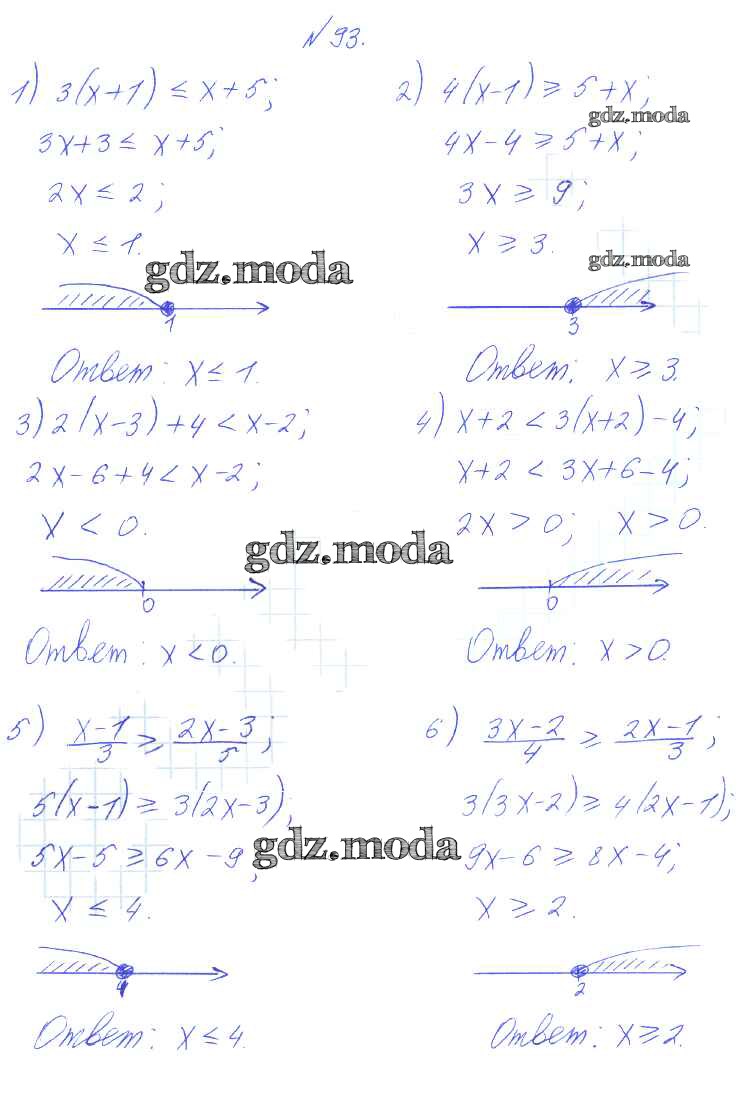 №93.
1) 3(x+1) ≤ x+5;
3x+3 ≤ x+5;
2x ≤ 2;
x ≤ 1.
gdz.moda
1
Ответ: x ≤ 1.
2) 4(x-1) ≥ 5+x;
gdz.moda
4x-4 ≥ 5+x;
3x ≥ 9;
x ≥ 3.
gdz.moda
3
Ответ: x ≥ 3.
3) 2(x-3)+4 < x-2;
2x-6+4 < x-2;
x < 0.
gdz.moda
0
Ответ: x < 0.
4) x+2 < 3(x+2)-4;
x+2 < 3x+6-4;
2x > 0; x > 0.
0
Ответ: x > 0.
5) (x-1)/3 ≥ (2x-3)/5;
5(x-1) ≥ 3(2x-3);
5x-5 ≥ 6x-9;
gdz.moda
x ≤ 4.
4
Ответ: x ≤ 4.
6) (3x-2)/4 ≥ (2x-1)/3;
3(3x-2) ≥ 4(2x-1);
9x-6 ≥ 8x-4;
x ≥ 2.
2
Ответ: x ≥ 2.